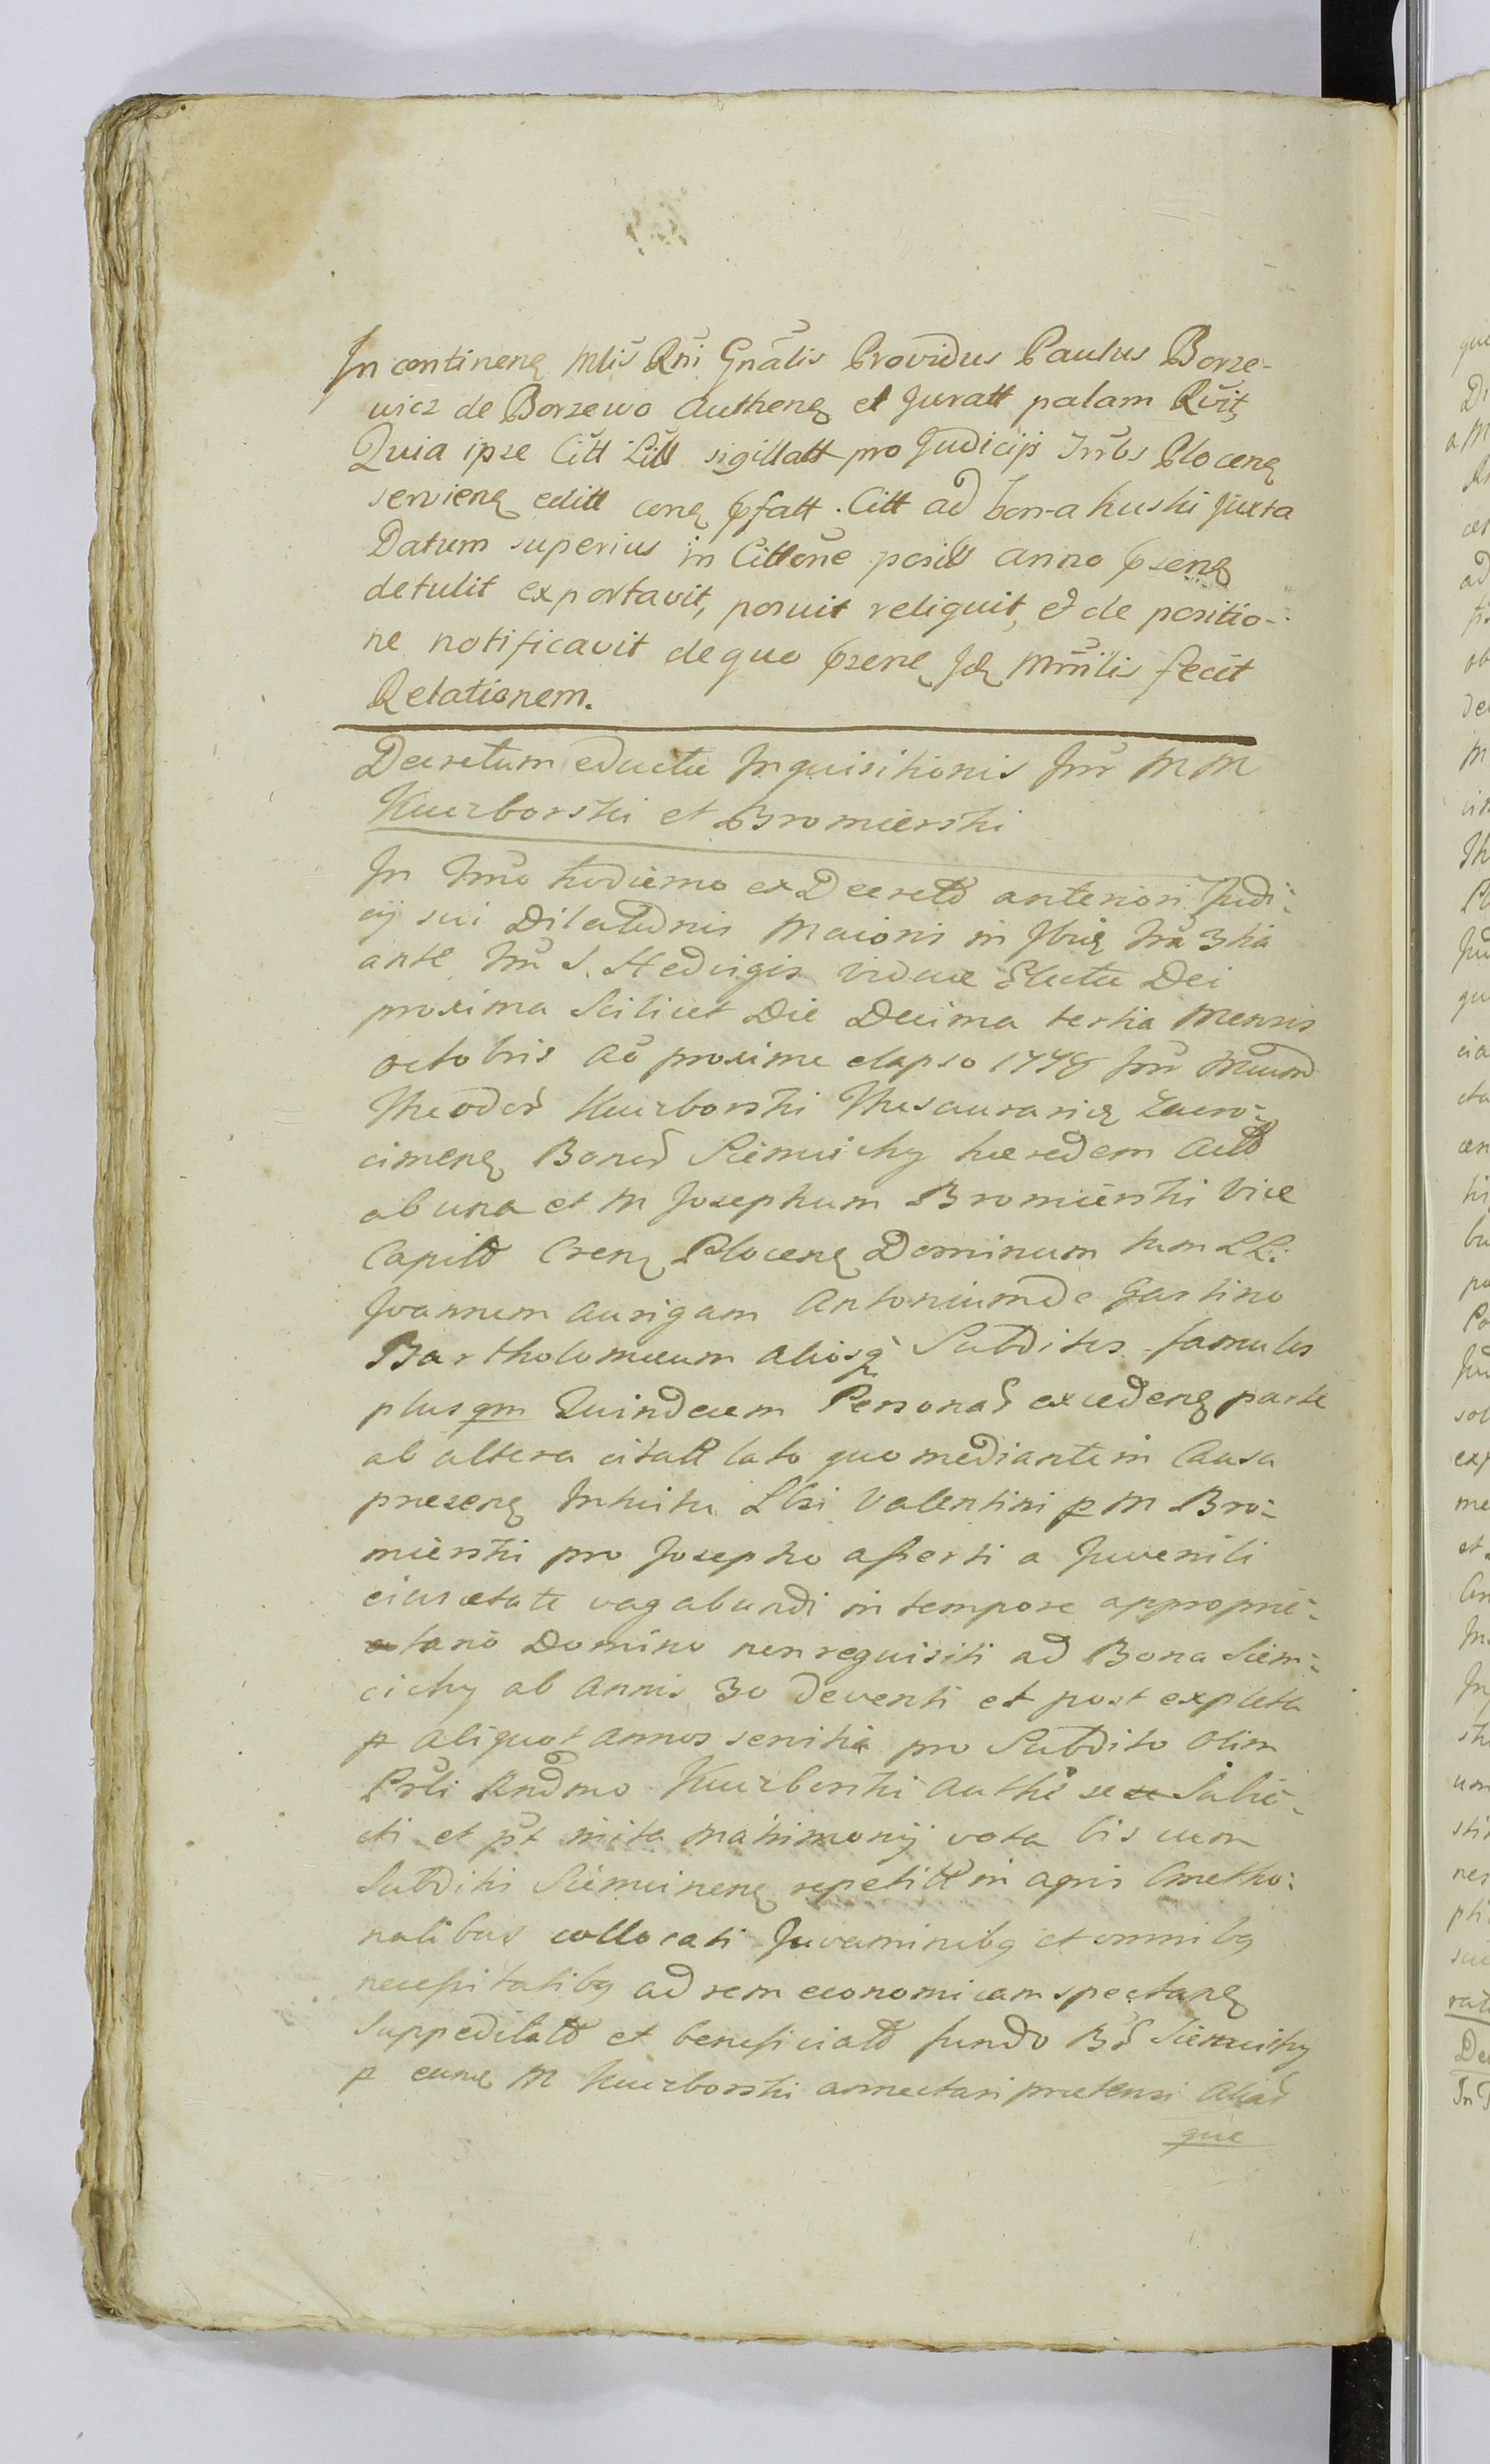 In continenꝫ Mlis Rni Gnalis Providus Paulus Borze-
wicz de Borzewo Authenꝫ et Juratt palam Rvit,
Quia ipse Citt Litt sigillatt pro Judicijs Trrbs Plocenꝫ
servienꝫ editt conꝫ pfatt. Citt ad bona Kuski Juxta
Datum superius in Cittone posit anno psenꝫ
detulit exportavit, posuit reliquit, et de positio-
ne notificavit de quo psene Idꝫ Mnilis fecit
Relationem.
Decretum eductae Inquisitionis Inr MM
Kuczborski et Bromierski
In Trno hodierno ex Decreto anteriori Judi-
cij sui Dilationis Maioris in fria 3tia
ante S. Hedvigis Viduae Electae Dei
proxima Scilicet Die Decima tertia Mensis
octobris Ao proxime elapso 1748 Inr Mcum
Theodor Kuczborski Thesaurariꝫ Zacro-
cimenꝫ Bonor haeredem Actt
ab una et M Josephum Bromierski Vice
Capitt Plocenꝫ Dominum tum LL.
Joannem Aurigam Antonium de Gastino
Bartholomaeum aliosq Subditos famulos
plus qm Quindecem Personas excedenꝫ parte
ab altera citatt lato quo mediante in Causa
praesenꝫ Intuitu Lbri Valentini p M Bro-
mierski pro Josepho asserti a Juvenili
eius aetate vagabundi in tempore
Domino non requisiti ad Bona Siem-
cichy ab Annis 30 deventi et post expleta
p aliquot annos servitia pro Subdito Olim
Andmo Kuczborski se Subie-
cti et pt inita Matrimonij vota bis cum
Subditis repetitt in agris Cmetho-
nalibus collocati Juvaminibꝫ et omnibꝫ
necessitatibꝫ ad rem economicam spectanꝫ
Suppeditatt et beneficiatt fundo
p eunꝫ M Kuczborski annectari praetensi Alias
que